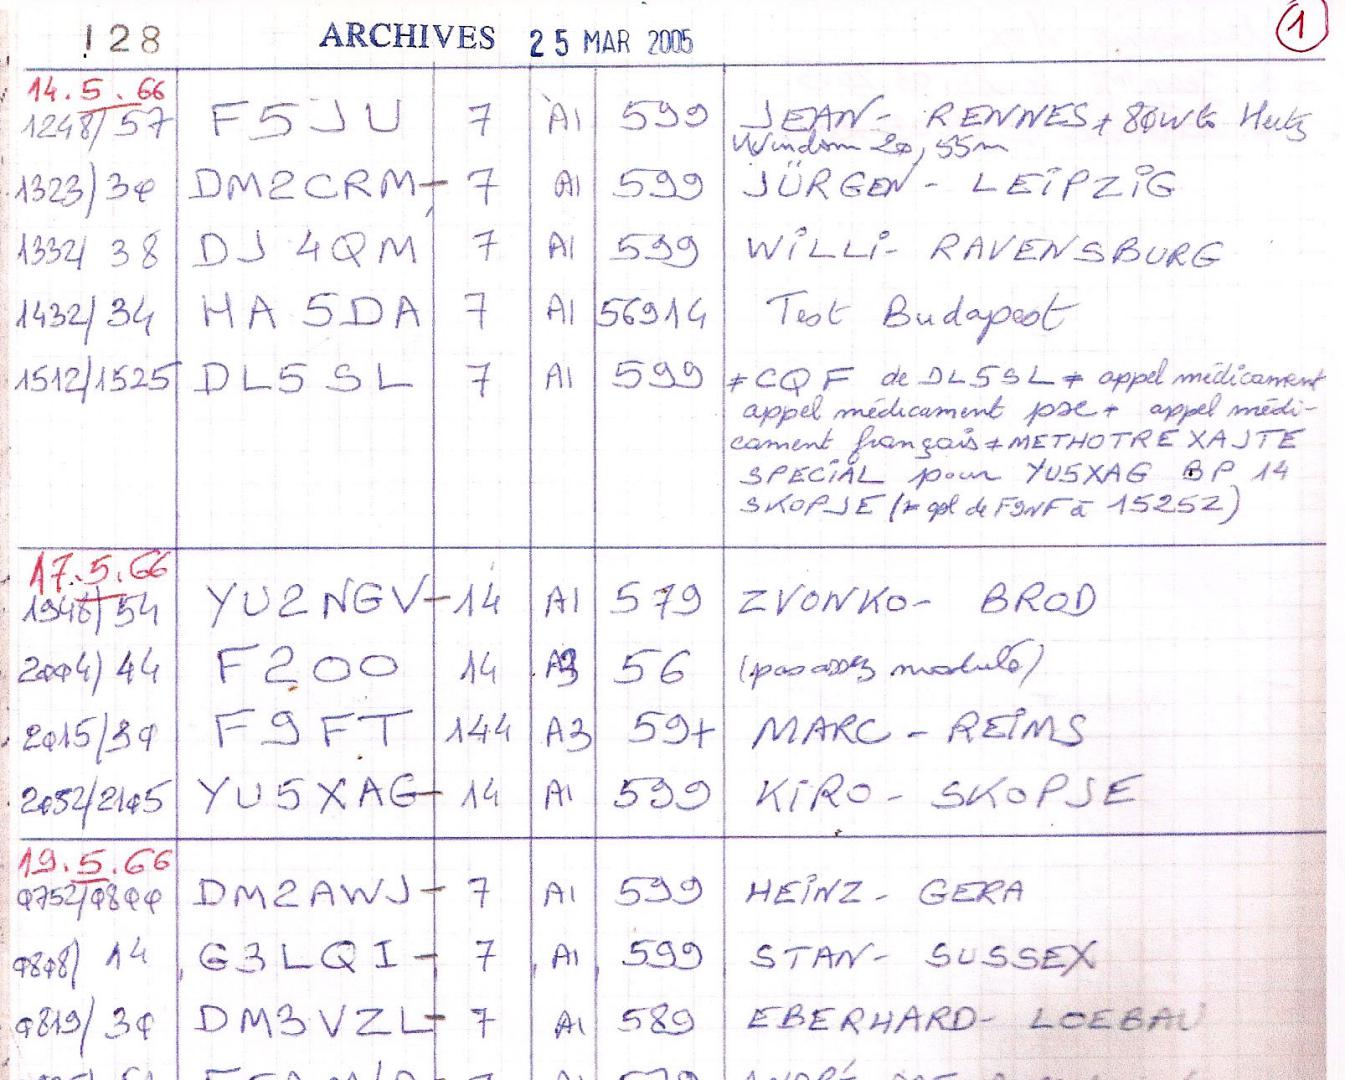 128 ARCHIVES 25 MAR 2005 1
14.5.66
1248/57 F5JU 7 A1 599 JEAN - RENNES + 80WTS Hertz
Windom 20,55m
1323/30 DM2CRM- 7 A1 599 JÜRGEN - LEIPZIG
1332/38 DJ4QM 7 A1 599 WILLI - RAVENSBURG
1432/34 HA5DA 7 A1 56914 Test Budapest
1512/1525 DL5SL 7 A1 599 + CQ F de DL5SL + appel médicament
appel médicament pse + appel médi-
cament français + METHOTREXAJTE
SPECIAL pour YU5XAG BP 14
SKOPJE (+ qsl de F9NF à 1525Z)
17.5.66
1948/54 YU2NGV- 14 A1 579 ZVONKO - BROD
2004/44 F2OO 14 A3 56 (pas assez modulé)
2015/30 F9FT 144 A3 59+ MARC - REIMS
2052/2105 YU5XAG- 14 A1 599 KIRO - SKOPJE
19.5.66
0752/0800 DM2AWJ- 7 A1 599 HEINZ - GERA
0808/14 G3LQI- 7 A1 599 STAN - SUSSEX
0819/30 DM3VZL- 7 A1 589 EBERHARD - LOEBAU